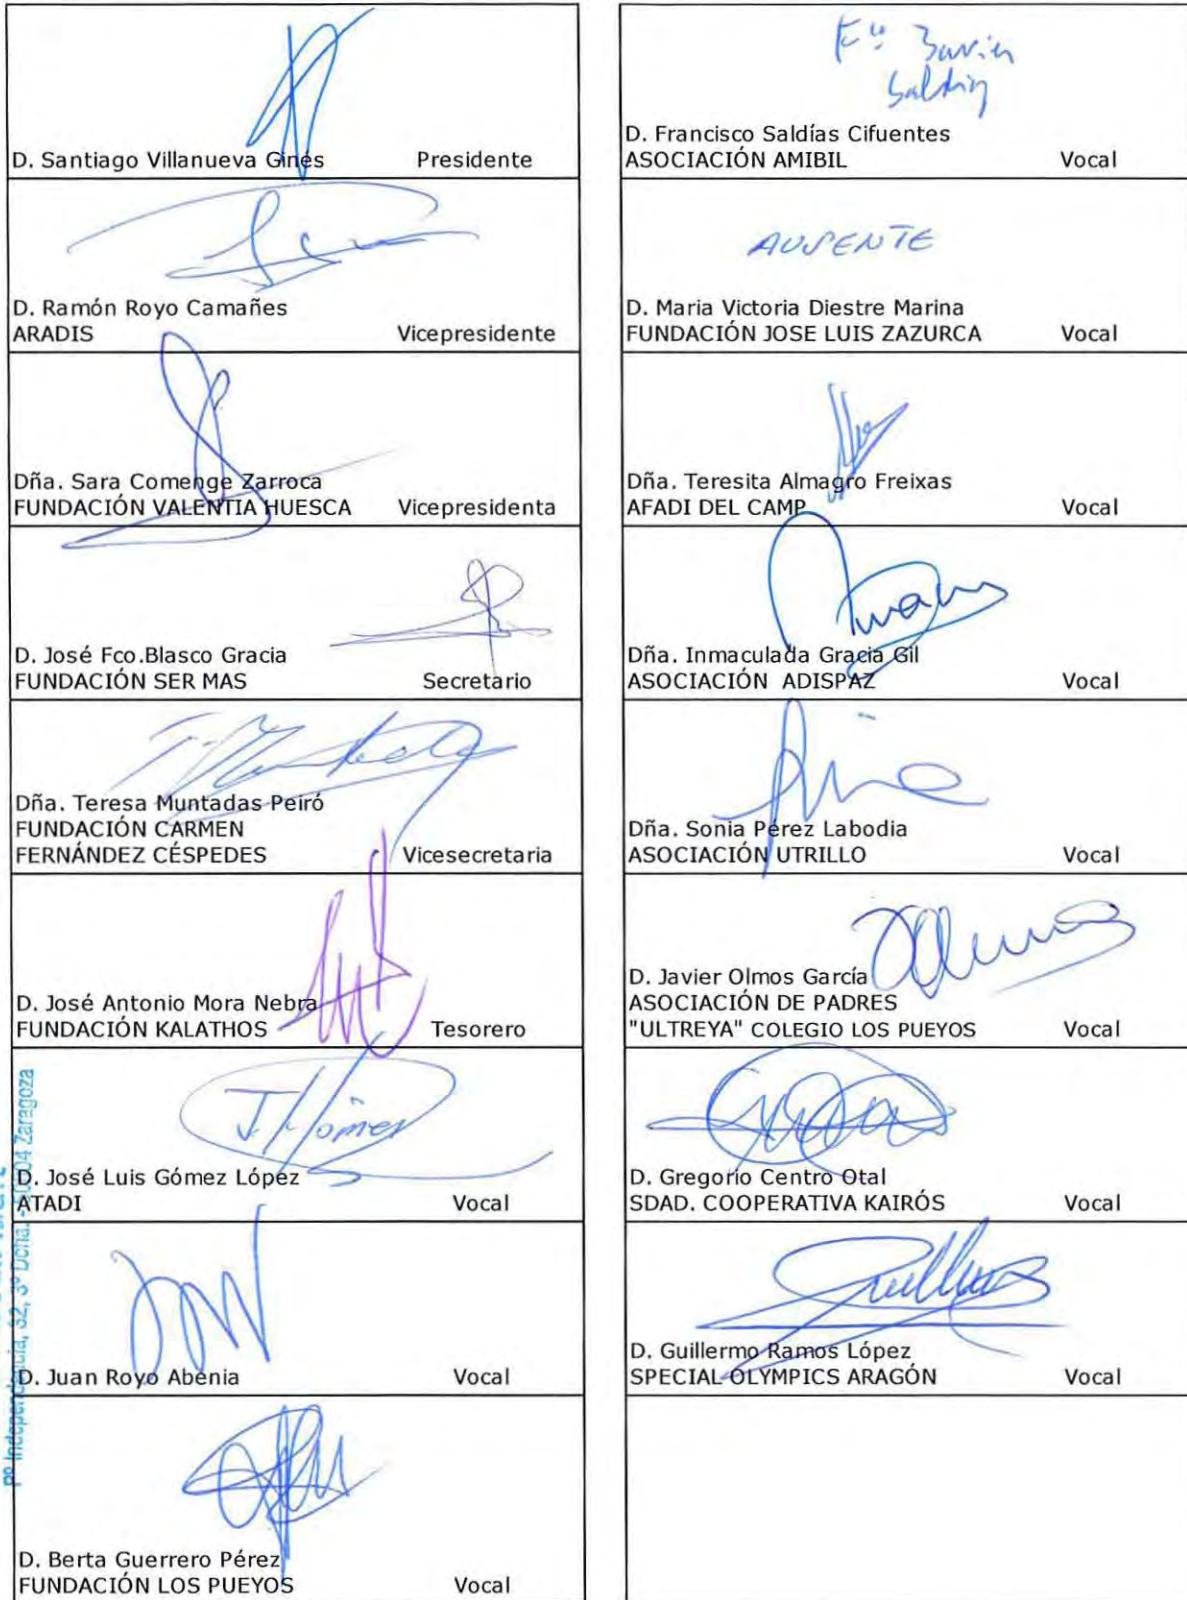 D. Santiago Villanueva Ginés Presidente
D. Ramón Royo Camañes
ARADIS Vicepresidente
Dña. Sara Comenge Zarroca
FUNDACIÓN VALENTIA HUESCA Vicepresidenta
D. José Fco.Blasco Gracia
FUNDACIÓN SER MAS Secretario
Dña. Teresa Muntadas Peiró
FUNDACIÓN CARMEN
FERNÁNDEZ CÉSPEDES Vicesecretaria
D. José Antonio Mora Nebra
FUNDACIÓN KALATHOS Tesorero
J. Gómez
D. José Luis Gómez López
ATADI Vocal
D. Juan Royo Abenia Vocal
D. Berta Guerrero Pérez
FUNDACIÓN LOS PUEYOS Vocal
Pº Independencia, 32, 3º Dcha. - 50004 Zaragoza
D. Francisco Saldías Cifuentes
ASOCIACIÓN AMIBIL Vocal
AUSENTE
D. Maria Victoria Diestre Marina
FUNDACIÓN JOSE LUIS ZAZURCA Vocal
Dña. Teresita Almagro Freixas
AFADI DEL CAMP Vocal
Dña. Inmaculada Gracia Gil
ASOCIACIÓN ADISPAZ Vocal
Dña. Sonia Pérez Labodia
ASOCIACIÓN UTRILLO Vocal
D. Javier Olmos García
ASOCIACIÓN DE PADRES
"ULTREYA" COLEGIO LOS PUEYOS Vocal
D. Gregorio Centro Otal
SDAD. COOPERATIVA KAIRÓS Vocal
D. Guillermo Ramos López
SPECIAL OLYMPICS ARAGÓN Vocal